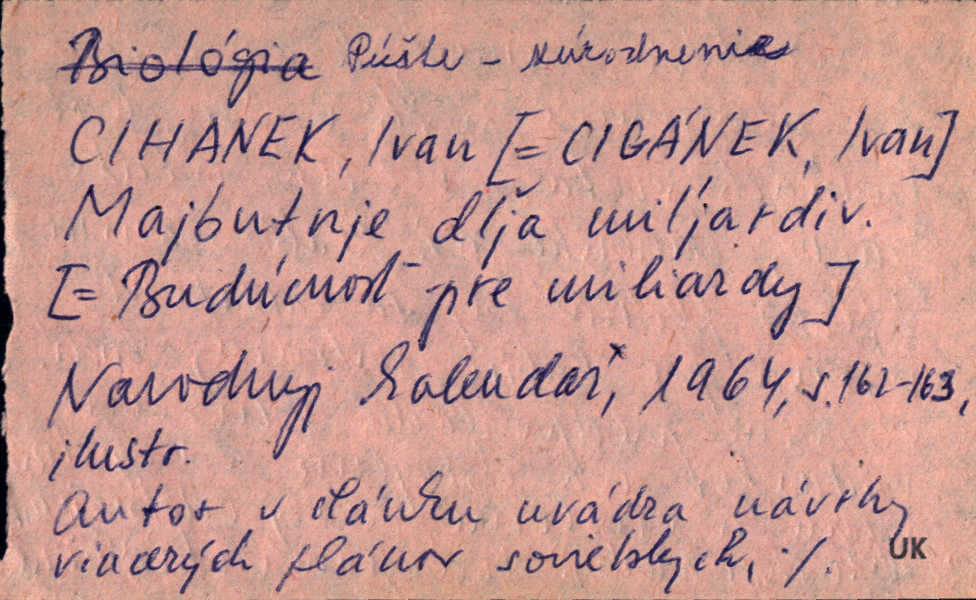 Biológia Púšte - zúrodnenie
CIHANEK, Ivan [= CIGÁNEK, Ivan]
Majbutnje dľja miľjardiv.
[= Budúcnosť pre miliardy]
Narodnyj kalendař, 1964, s. 162-163,
ilustr.
Autor v článku uvádza návrhy
viacerých plánov sovietskych, ./.
UK